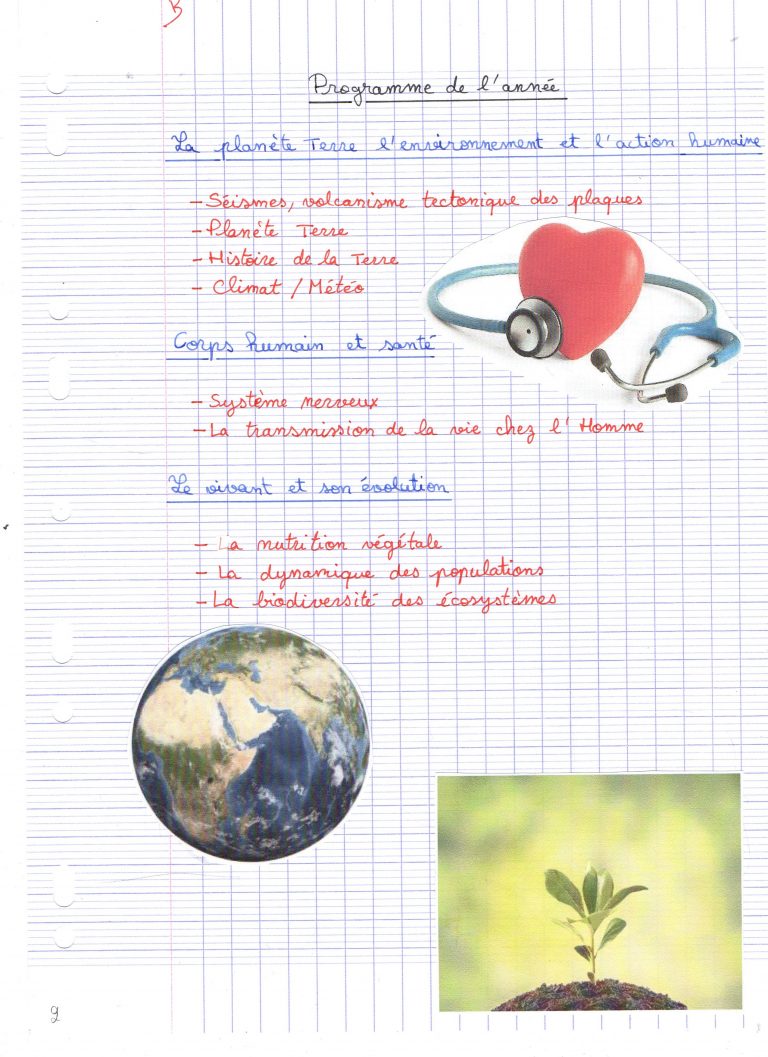 B
Programme de l'année
La planète Terre l'environnement et l'action humaine
- Séismes, volcanisme tectonique des plaques
- Planète Terre
- Histoire de la Terre
- Climat / Météo
Corps humain et santé
- Système nerveux
- La transmission de la vie chez l'Homme
Le vivant et son évolution
- La nutrition végétale
- La dynamique des populations
- La biodiversité des écosystèmes
9